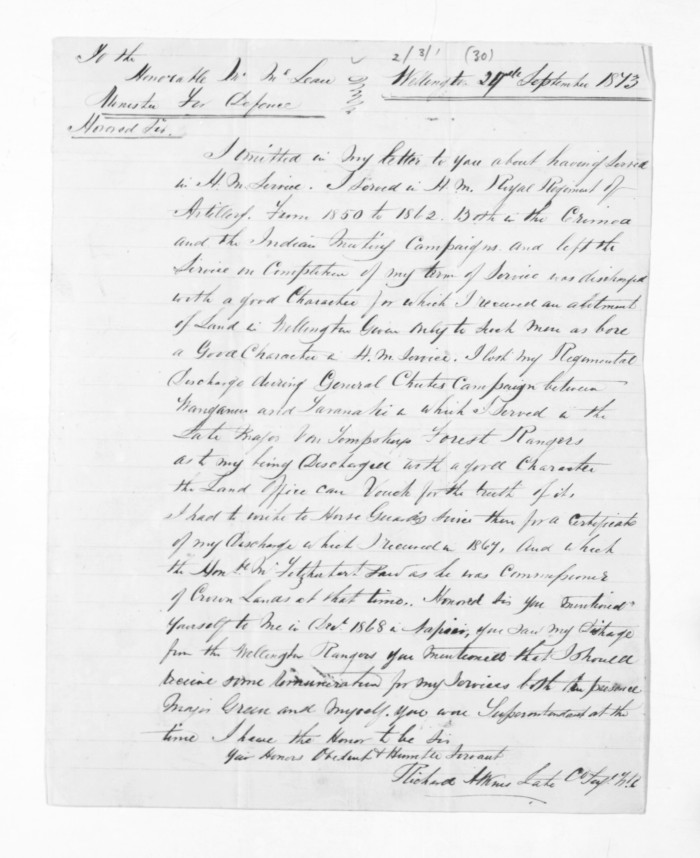 2/3/1 (30)
To the
Honorable Mr McLean Wellington 29th September 1873
Minister For Defence
Honored Sir.
I omitted in my letter to you about having Served
in H.M. Service. I Served in H.M. Royal Regiment of
Artillery. From 1850 to 1862. Both in the Crimea
and the Indian Mutiny Campaigns. and left the
Service on Completion of my term of Service was discharged
with a good Character for which I received an alotment
of Land in Wellington Given Only to Such Men as bore
a Good Character in H.M. Service. I lost my Regimental
Discharge during General Chutes Campaign between
Wanganui and Taranaki in which I Served in the
Late Major Von Tempskys Forest Rangers
as to my being Discharged with a good Character
the Land Office can Vouch for the truth of it.
I had to write to Horse Guards Since then for a Certificate
of my Discharge which I received in 1867. And which
the Honble Mr Fitzherbert Saw as he was Commissioner
of Crown Lands at that time. Honored Sir you mentioned
yourself to Me in 1868 in Napier, you saw my Discharge
from the Wellington Rangers you mentioned that I should
receive some remuneration for my Services both in presence
Major Green and Myself. you were Superintendant at the
time I have the Honor to be Sir
Your Honors Obedient & Humble Servant
Richard Atkins Late